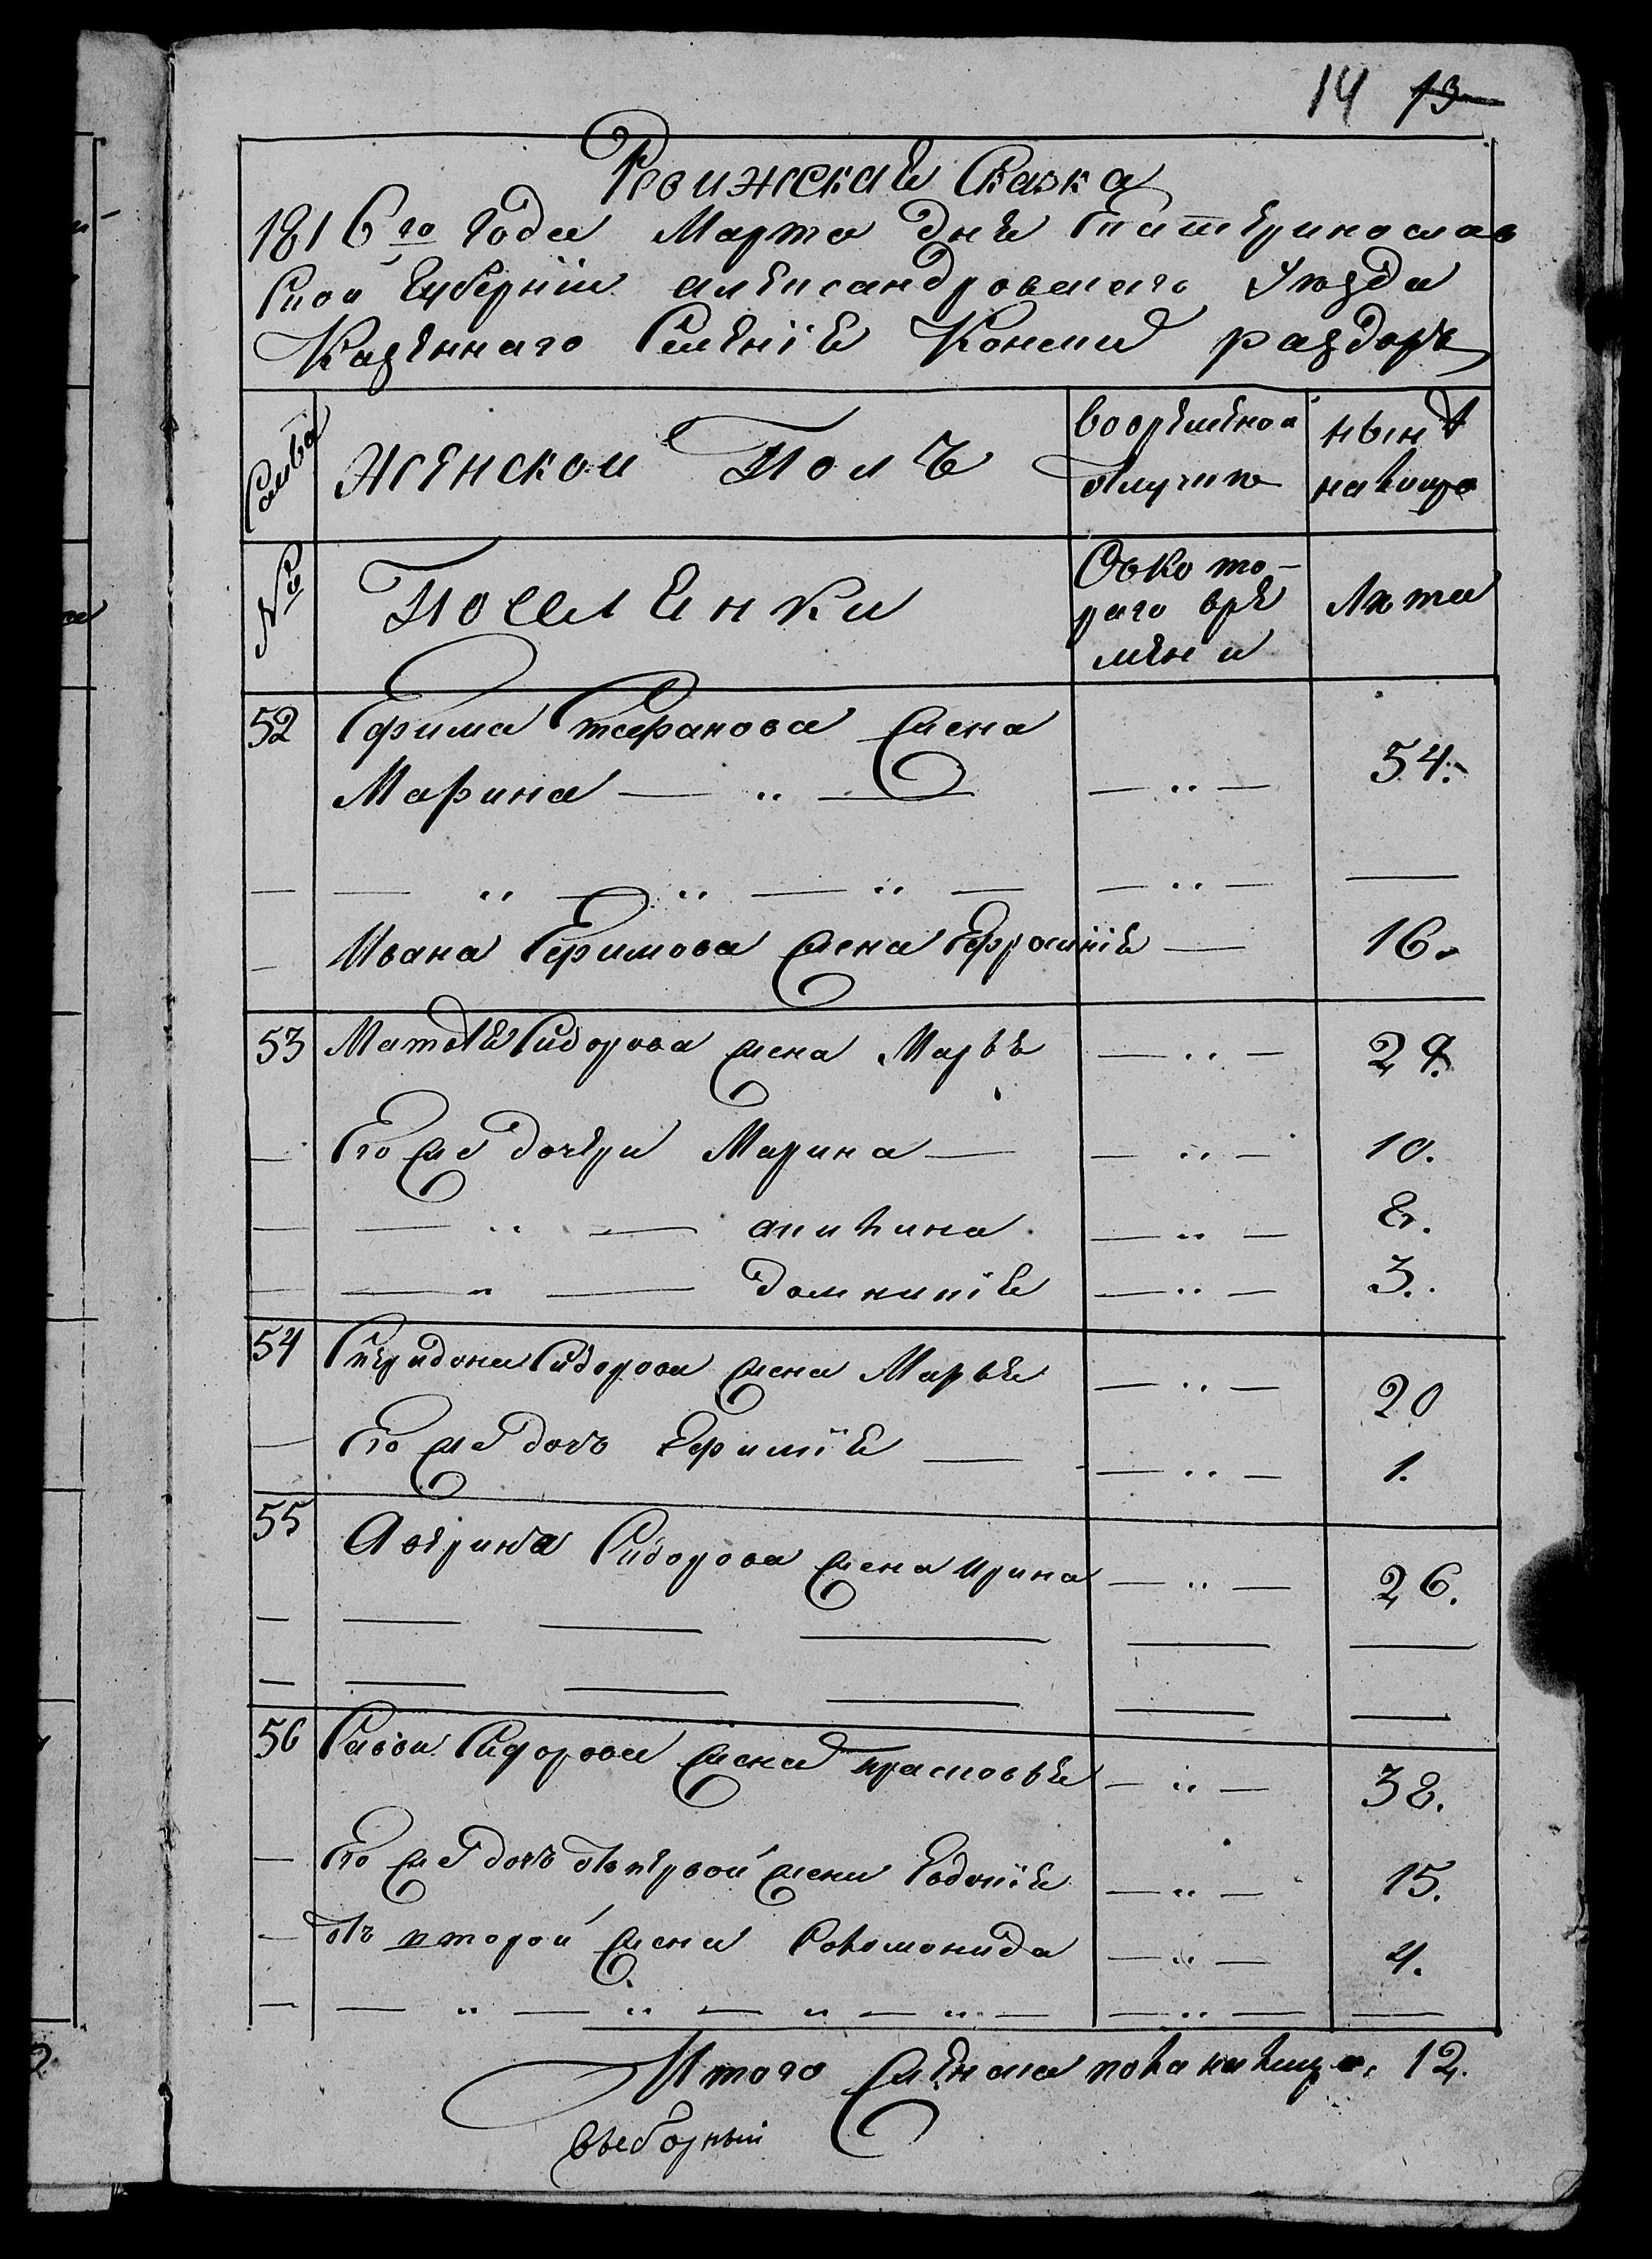 14 13
Ревижская Сказка
1816го года Марта дня Екатеринослав
ской Губернии александровскаго уезда
Казенного Селения Конски раздоръ
Семьи
женскои Полъ
вовременной
отлучке
ныне
налицо
№
Поселенки
Съ ко то-
раго вре
мени
Лета
52 Ефима Стефанова жена
Марина — " — — " — 54.
— — " — " — " — — " — —
— Ивана Ефимова жена Ефросиния — 16.
53 Матвея Сидорова жена Марья — " — 29.
— Его же дочери Марина — — " — 10.
— — " — акилина — " — 8.
— — " — Домникия — " — 3.
54 Спиридона Сидорова жена Марья — " — 20
— Его же дочь Ефимия — — " — 1.
55 Аверина Сидорова жена Ирина — " — 26.
— — — — — —
— — — — — —
56 Савы Сидорова жена Прасковья — " — 38.
— Его же дочь отъ первой жены Евдокия — " — 15.
— отъ второй жены Соломонида — " — 4.
— — " — " — " — " — — " — —
Итого женска пола налицо 12.
выборный